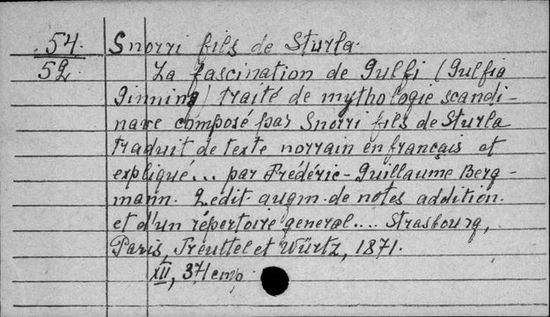 54. Snorri fils de Sturla.
52 La fascination de Gulfi (Gulfia
Ginning) traité de mythologie scandi-
nave composé par Snorri fils de Sturla
traduit de texte norrain en français et
expliqué... par Frédéric-Guillaume Berg-
mann. 2 edit. augm. de notes addition.
et d'un répertoire general.... Strasbourg,
Paris, Treuttel et Würtz, 1871.
XII, 371 emp.